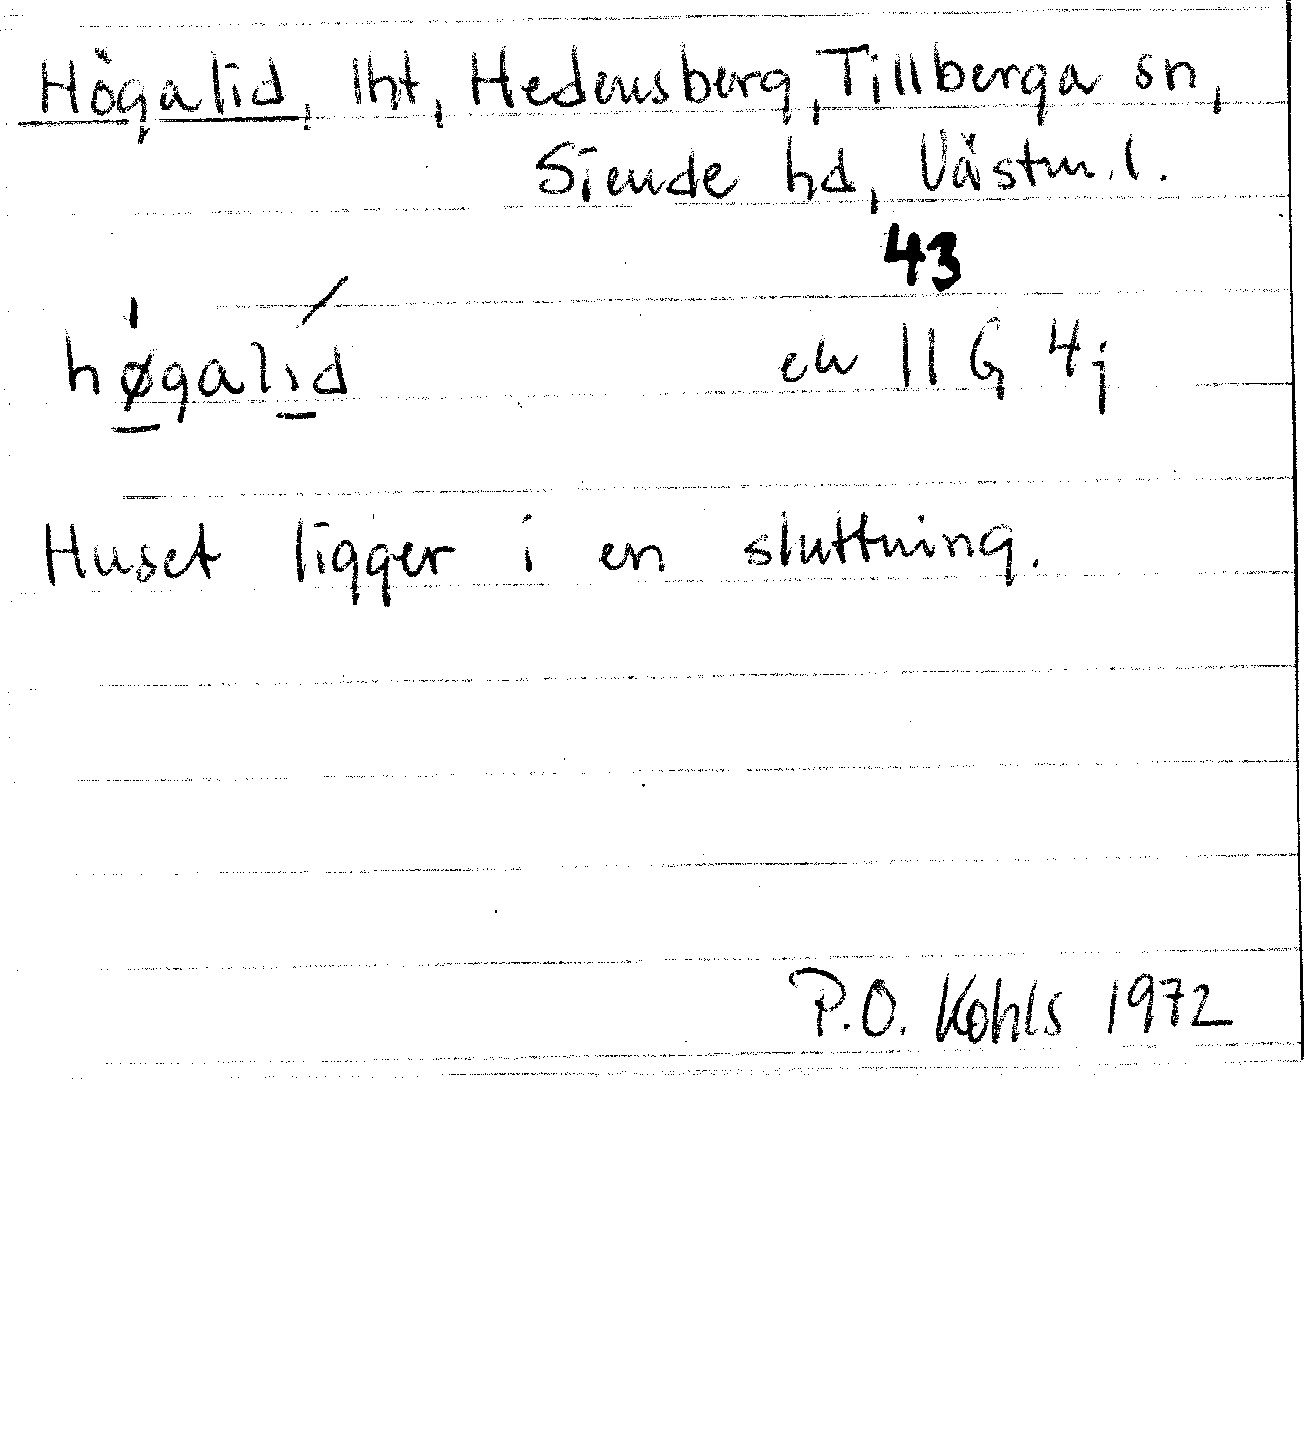 Högalid, lht, Hedensberg, Tillberga sn,
Siende hd, Västm. l.
43
høgalid ek 11 G 4j
Huset ligger i en sluttning.
P.O. Kohls 1972